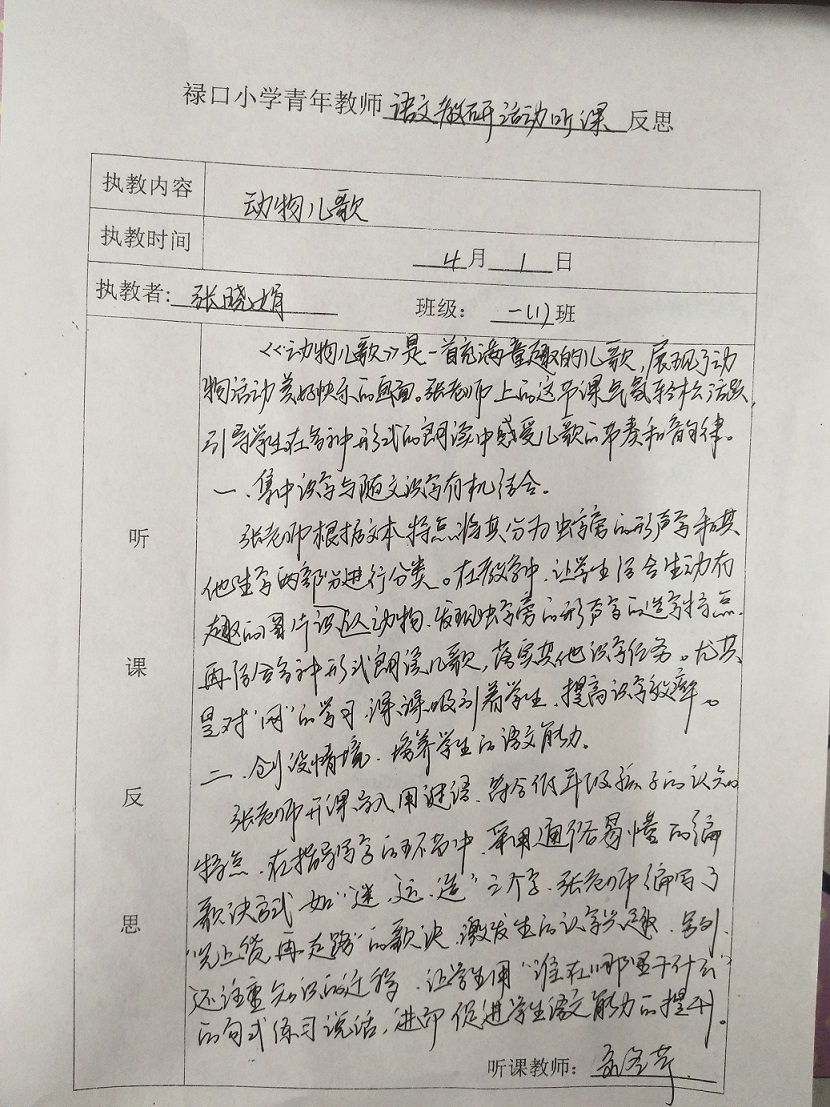 禄口小学青年教师 语文教研活动听课 反思
执教内容 动物儿歌
执教时间 4月1日
执教者：张晓娟 班级：一(1)班
听课反思
《动物儿歌》是一首充满童趣的儿歌，展现了动
物活动美好快乐的画面。张老师上的这节课气氛轻松活跃，
引导学生在各种形式的朗读中感受儿歌的节奏和音韵律。
一、集中识字与随文识字有机结合。
张老师根据文本特点将其分为虫字旁的形声字和其
他生字两部分进行分类。在教学中，让学生结合生动有
趣的图片识认动物，发现虫字旁的形声字的造字特点，
再结合各种形式朗读儿歌，落实其他识字任务。尤其
是对“网”的学习，深深吸引着学生，提高识字效率。
二、创设情境，培养学生的语文能力。
张老师开课导入用谜语，符合低年级孩子的认知
特点，在指导写字的环节中，采用通俗易懂的编
歌诀方式，如“迷、运、造”三个字，张老师编写了
“先上货再走路”的歌诀，激发生的认字兴趣，
还注重知识的迁移，让学生用“谁在哪里干什么”
的句式练习说话，进而促进学生语文能力的提升。
听课教师：